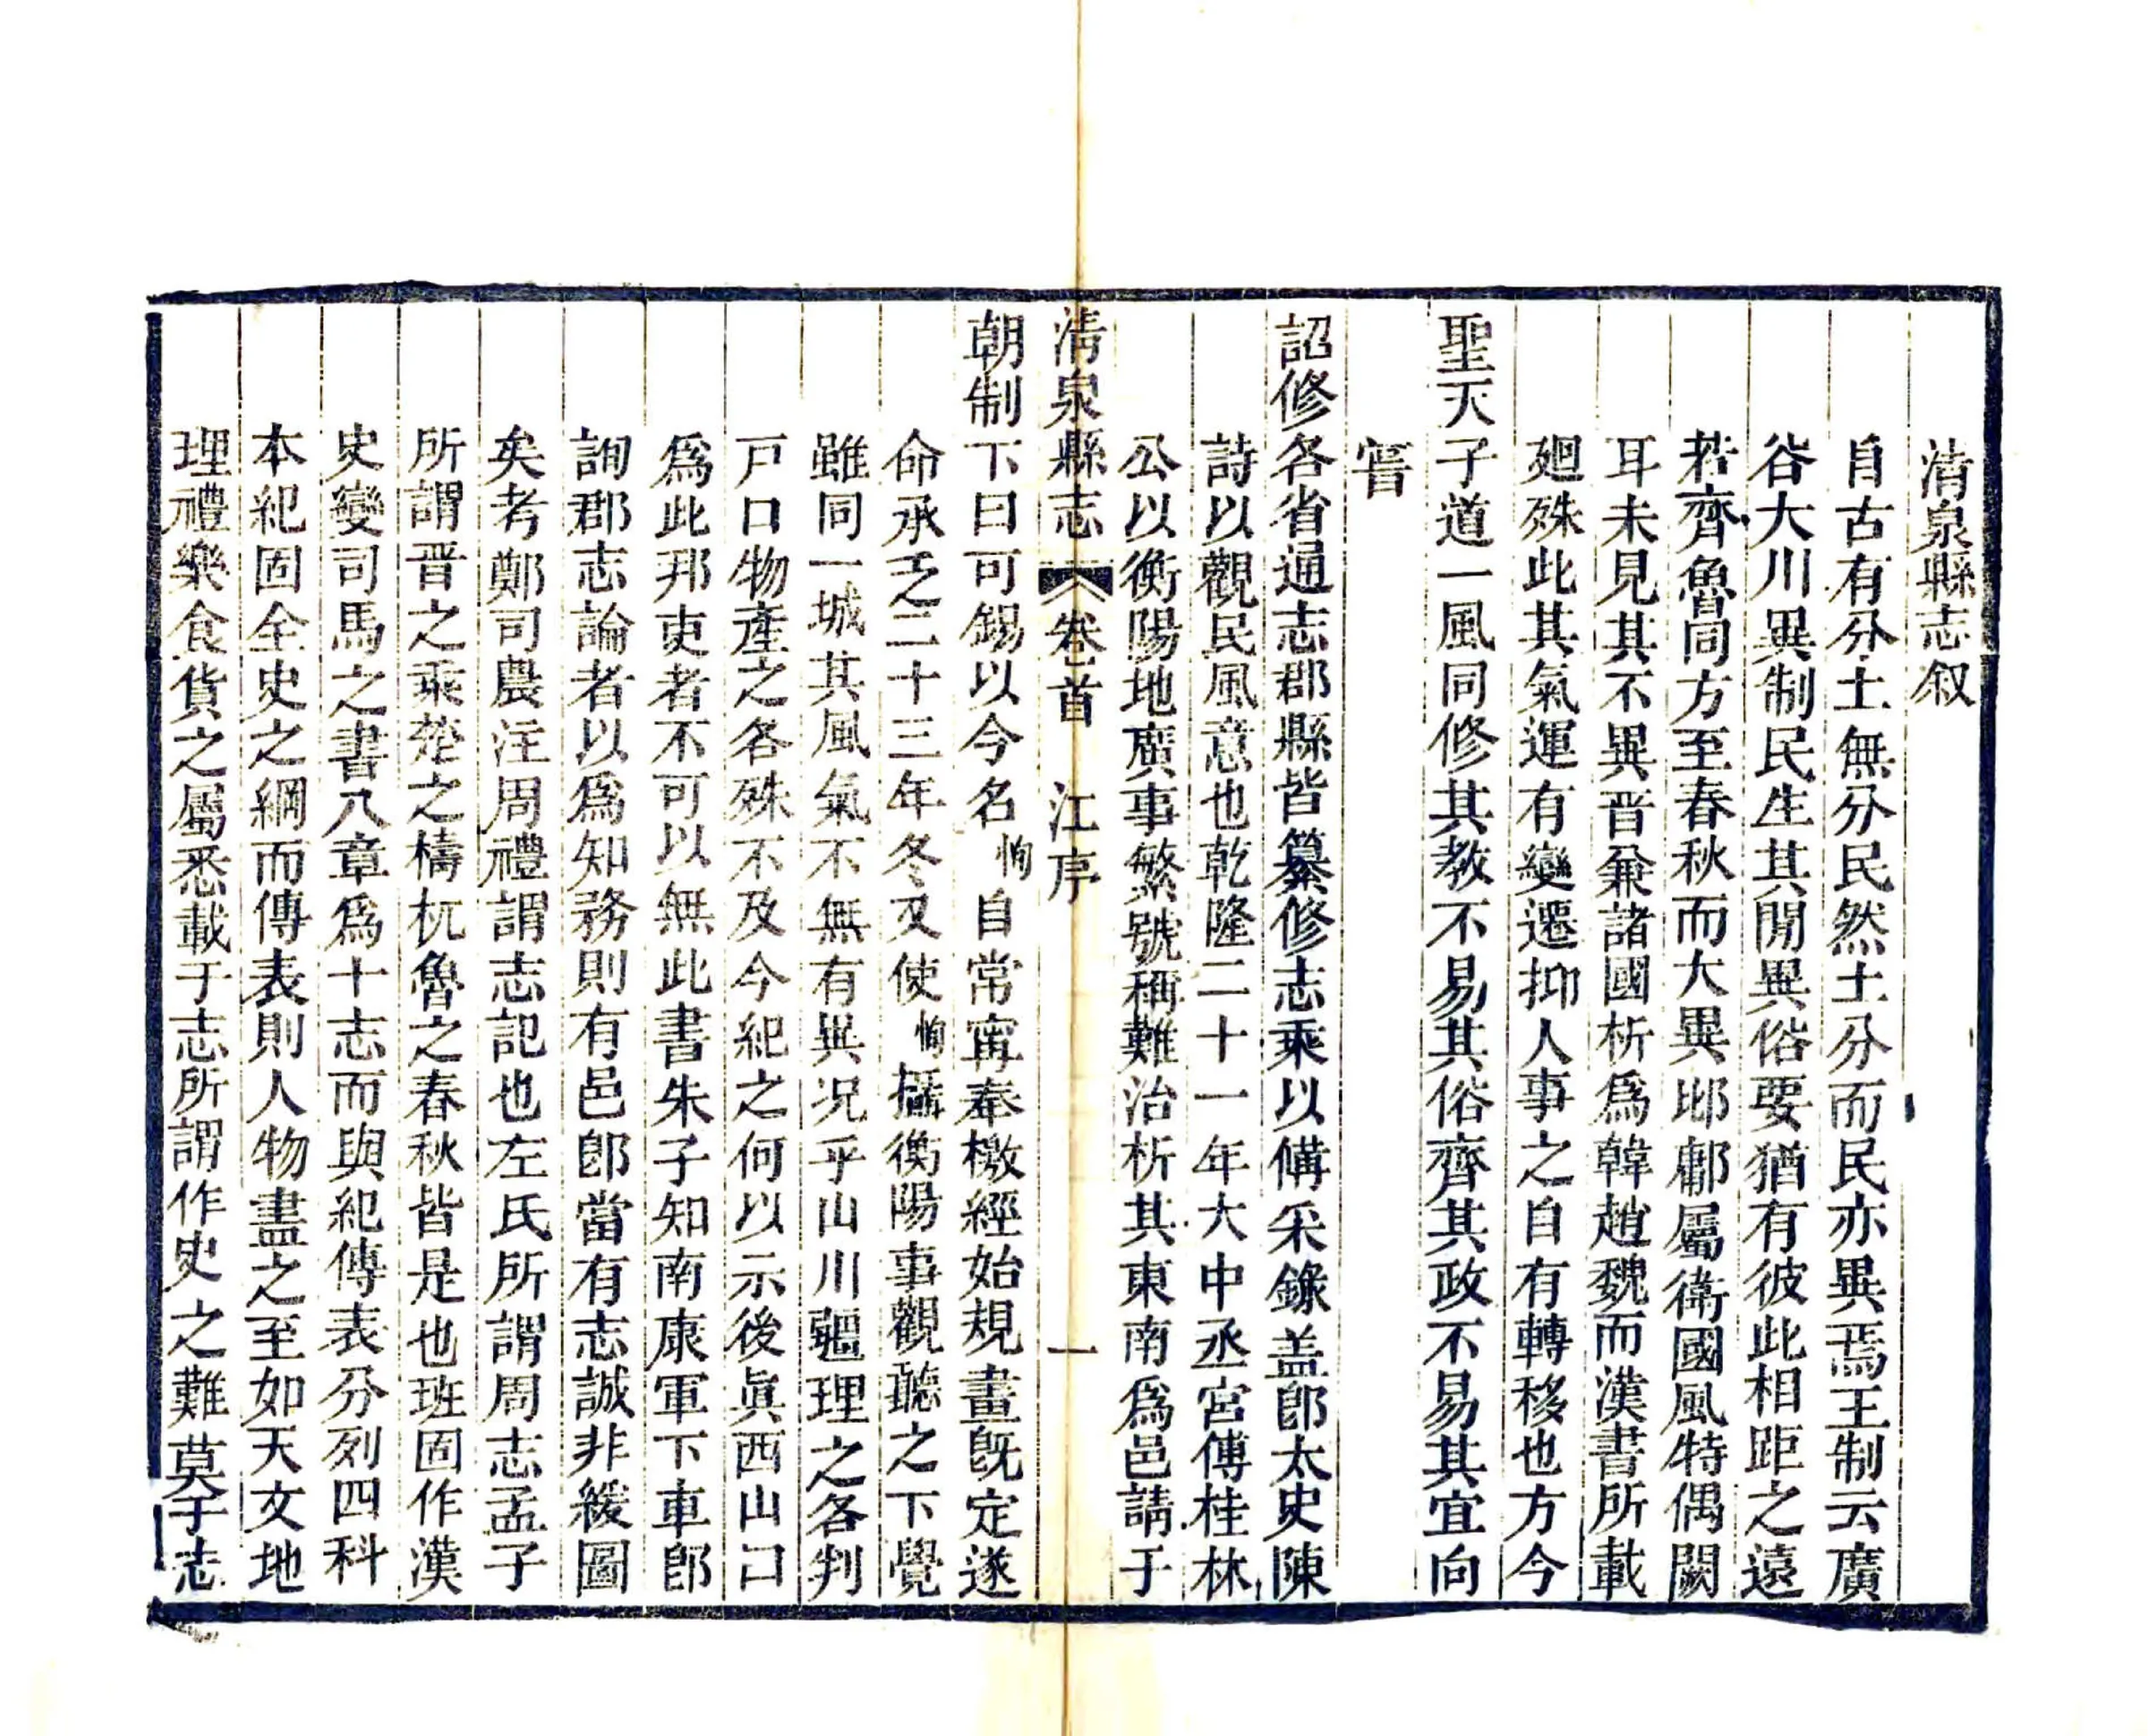 清泉縣志叙
自古有分土無分民然土分而民亦異焉王制云廣
谷大川異制民生其閒異俗要猶有彼此相距之遠
若齊魯同方至春秋而大異邶鄘屬衛國風特偶闕
耳未見其不異晋兼諸國析爲韓趙魏而漢書所載
廻殊此其氣運有變遷抑人事之自有轉移也方今
聖天子道一風同修其教不易其俗齊其政不易其宜向
甞
詔修各省通志郡縣皆纂修志乘以備采錄盖卽太史陳
詩以觀民風意也乾隆二十一年大中丞宮傅桂林
公以衡陽地廣事繁號稱難治析其東南爲邑請于
清泉縣志 卷首 江序 一
朝制下曰可錫以今名恂自常寗奉檄經始規畫旣定遂
命承乏二十三年冬又使恂攝衡陽事觀聽之下覺
雖同一城其風氣不無有異况乎山川疆理之各判
戸口物產之各殊不及今紀之何以示後眞西山曰
爲此邦吏者不可以無此書朱子知南康軍下車卽
詢郡志論者以爲知務則有邑卽當有志誠非緩圖
矣考鄭司農注周禮謂志記也左氏所謂周志孟子
所謂晋之乘楚之檮杌魯之春秋皆是也班固作漢
史變司馬之書八章爲十志而與紀傳表分列四科
本紀固全史之綱而傳表則人物盡之至如天文地
理禮樂食貨之屬悉載于志所謂作史之難莫于志